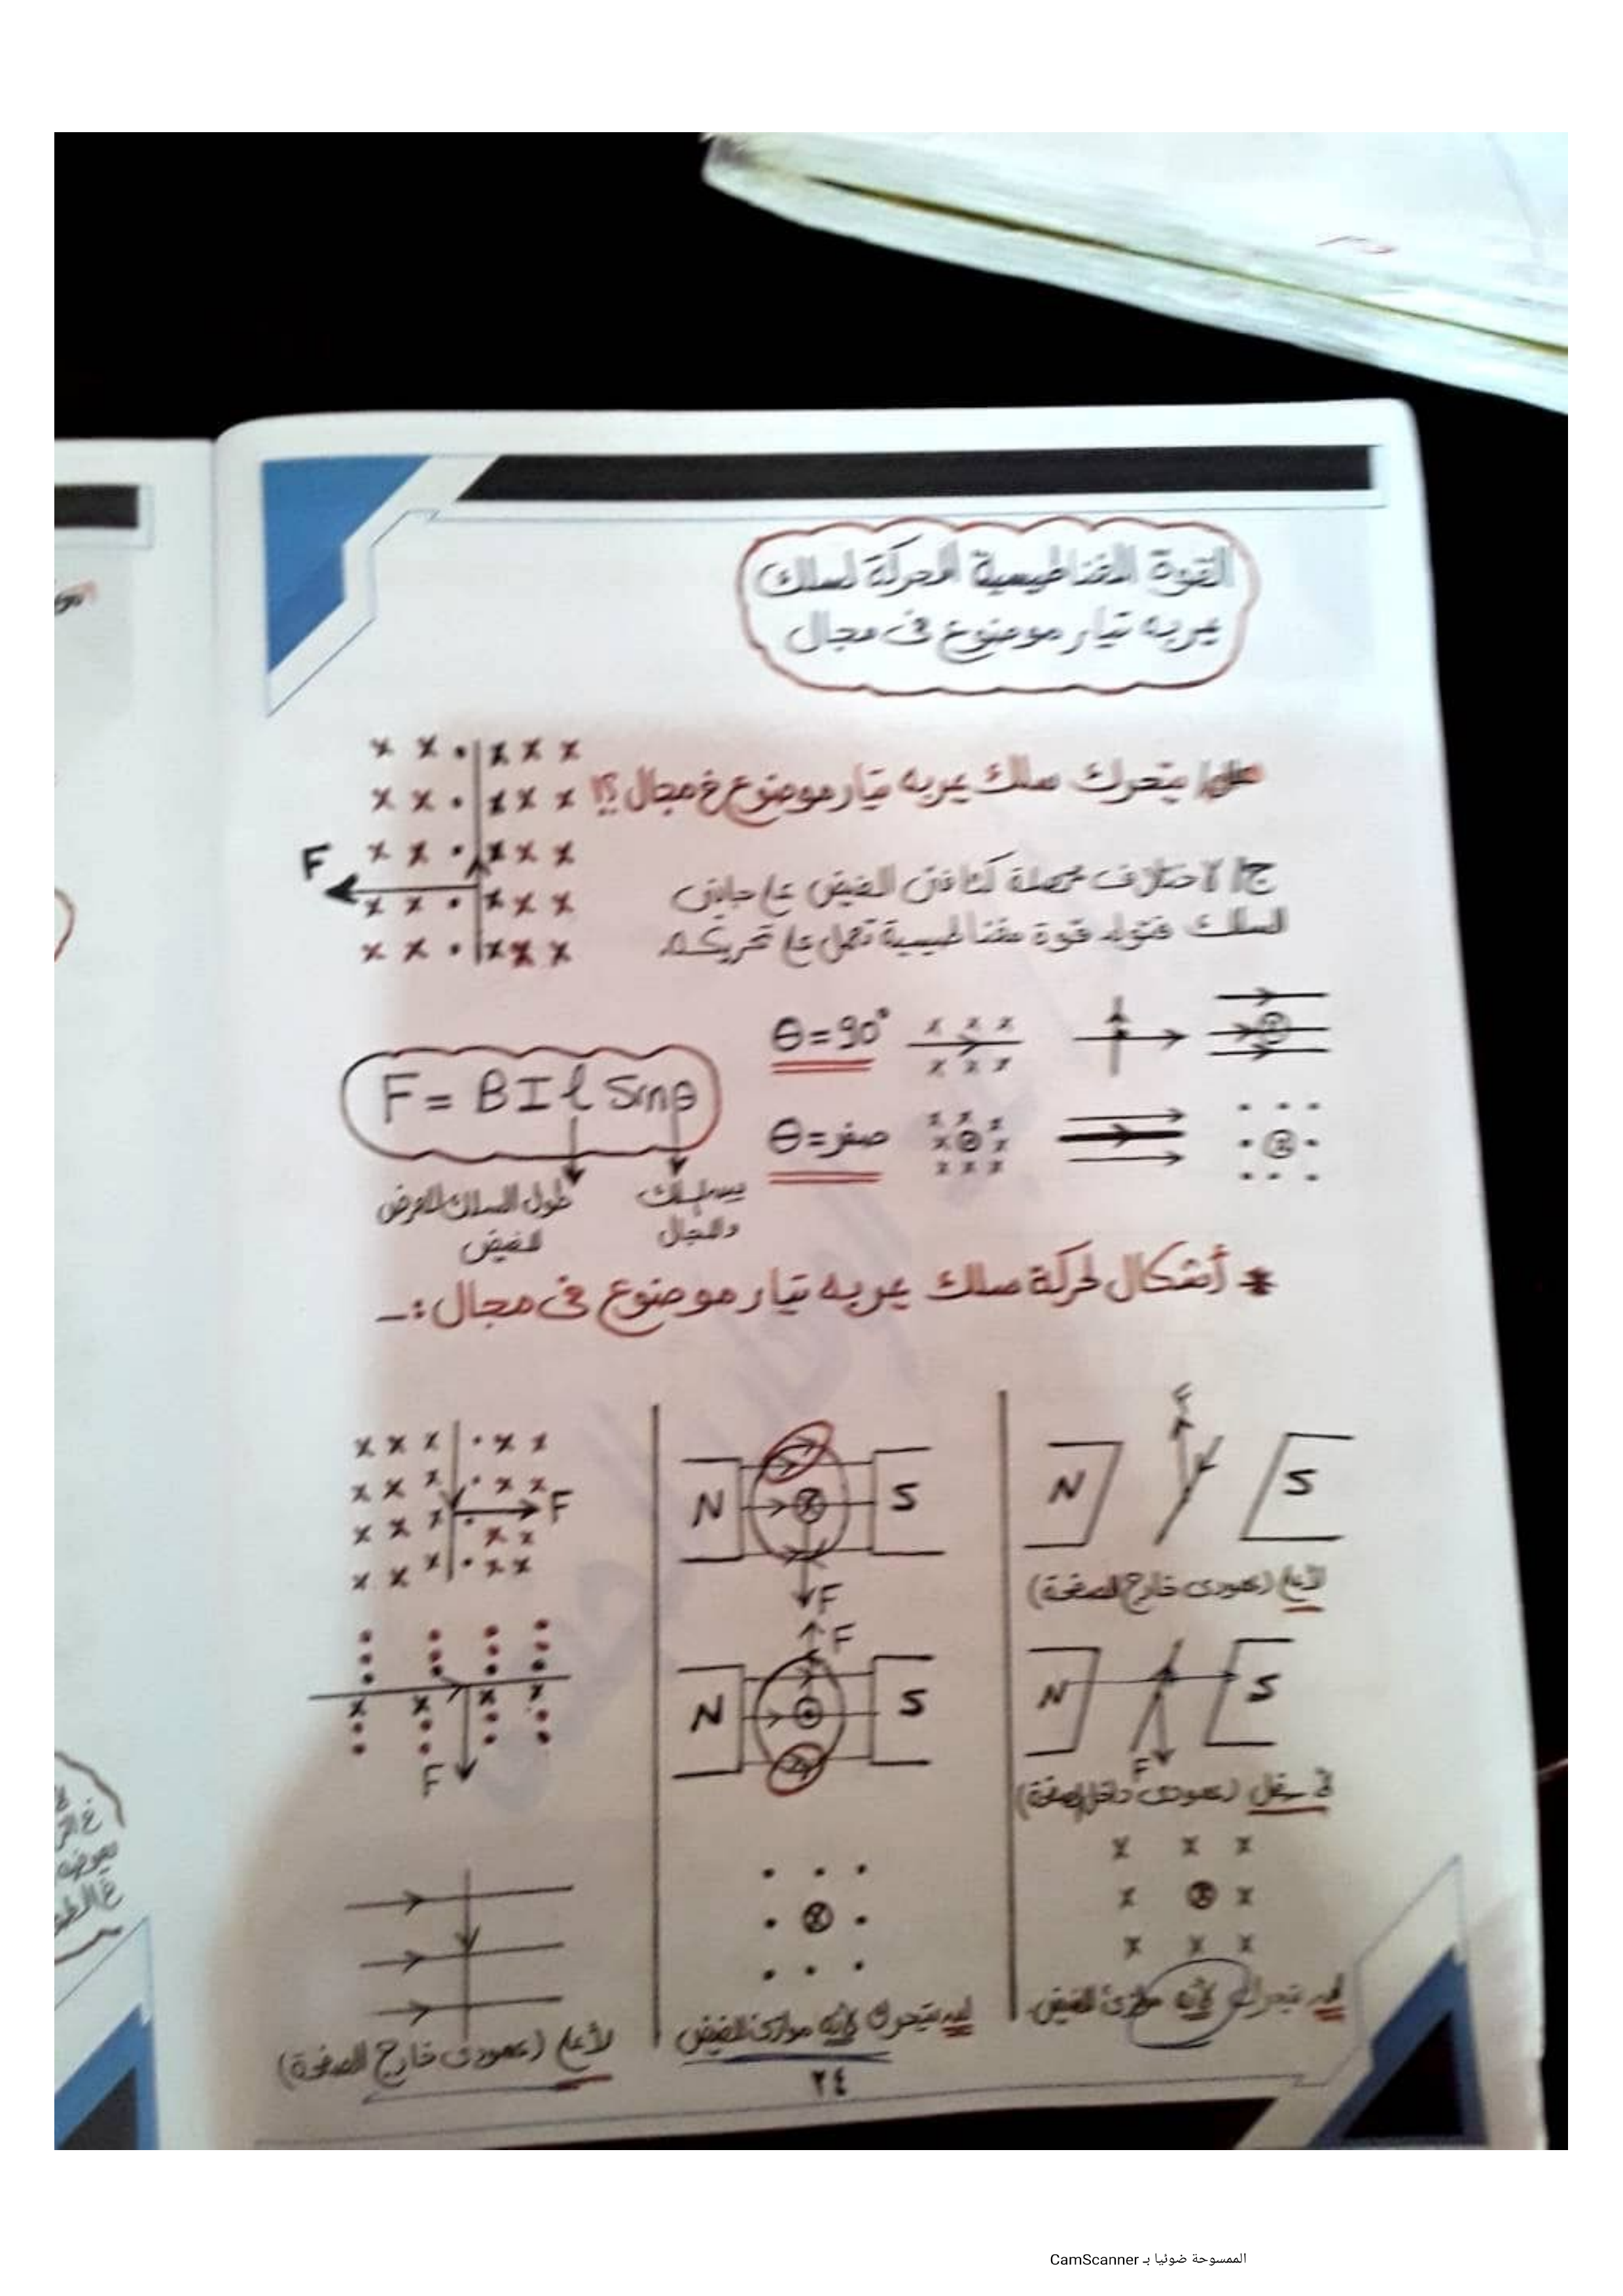 القوة المغناطيسية المحركة لسلك
يمر به تيار موضوع فى مجال
علل/ يتحرك سلك يمر به تيار موضوع فى مجال ؟!
ج/ لاختلاف محصلة كثافتى الفيض على جانبى
السلك فتولد قوة مغناطيسية تعمل على تحريكه
F
θ = 90°
F = B I ℓ Sin θ
θ = صفر
بين السلك
والمجال
طول السلك المعرض
للفيض
* أشكال لحركة سلك يمر به تيار موضوع فى مجال :-
F
N S
لأعلى (عمودى خارج الصفحة)
F
N S
لأسفل (عمودى داخل الصفحة)
لن يتحرك لأنه موازى للفيض
N S
F
F
N S
لن يتحرك لأنه موازى للفيض
F
F
لأعلى (عمودى خارج الصفحة)
٢٤
الممسوحة ضوئيا بـ CamScanner